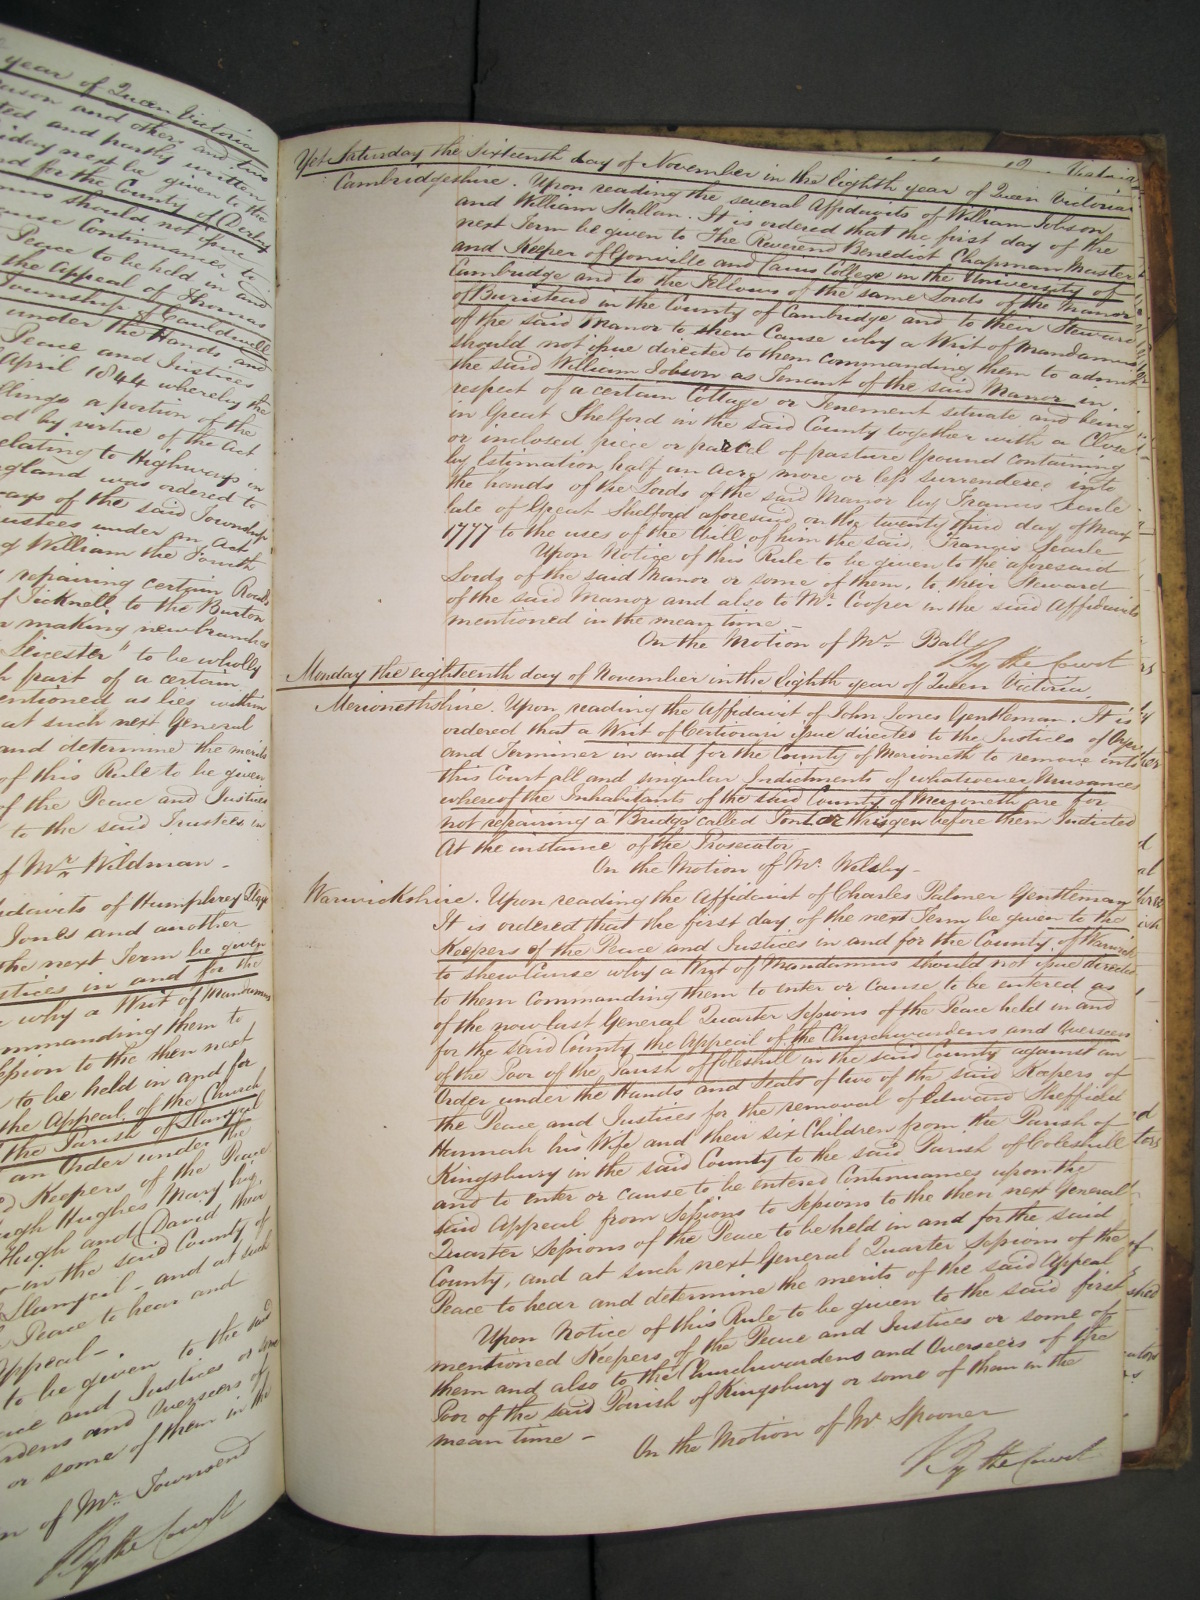 year of Queen Victoria
and others and two
ted and partly written
day next be given to the
nd for the County of Derby
should not issue
cause Continuances to
Peace to be held in and
the Appeal of Thomas
Township of Cauldwell
under the Hands and
Peace and Justices
April 1844 whereby the
llings a portion of the
d by virtue of the Act
elating to Highways in
ngland was ordered to
ays of the said Township
ustees under an Act
g William the Fourth
repairing certain Roads
f Ticknell to the Burton
making new branches
Leicester" to be wholly
h part of a certain
entioned as lies within
at such next General
and determine the merits
of this Rule to be given
of the Peace and Justices
to the said Trustees in
f Mr. Wildman -
idavits of Humphrey
Jones and another
the next Term be given
stices in and for the
why a Writ of Mandamus
mmanding them to
ssion to the then next
to be held in and for
the Appeal of the Church
the Parish of
an Order under the
Keepers of the Peace
ugh Hughes Mary his
Hugh and David their
in the said County of
and at such
Peace to hear and
Appeal -
to be given to the said
ace and Justices or some
rdens and Overseers of
or some of them in the
n of Mr. Townsend
By the Court
Yet Saturday the Sixteenth day of November in the Eighth year of Queen Victoria
Cambridgeshire. Upon reading the several Affidavits of William Jobson
and William Hallam. It is ordered that the first day of the
next Term be given to The Reverend Benedict Chapman Master
and Keeper of Gonville and Caius College in the University of
Cambridge and to the Fellows of the same Lords of the Manor
of Buristead in the County of Cambridge and to their Steward
of the said Manor to shew Cause why a Writ of Mandamus
should not issue directed to them commanding them to admit
the said William Jobson as Tenant of the said Manor in
respect of a certain Cottage or Tenement situate and being
in Great Shelford in the said County together with a Close
or inclosed piece or parcel of pasture Ground containing
by Estimation half an Acre more or less surrendered into
the hands of the Lords of the said Manor by Francis Searle
late of Great Shelford aforesaid on the twenty third day of May
1777 to the uses of the Will of him the said Francis Searle
Upon Notice of this Rule to be given to the aforesaid
Lords of the said Manor or some of them, to their Steward
of the said Manor and also to Mr. Cooper in the said Affidavits
mentioned in the mean time -
On the Motion of Mr. Ball
By the Court
Monday the eighteenth day of November in the Eighth year of Queen Victoria.
Merionethshire. Upon reading the Affidavit of John Jones Gentleman. It is
ordered that a Writ of Certiorari issue directed to the Justices of Oyer
and Terminer in and for the County of Merioneth to remove into
this Court all and singular Indictments of whatsoever Nusances
whereof the Inhabitants of the said County of Merioneth are for
not repairing a Bridge called before them Indicted
At the instance of the Prosecutor
On the Motion of Mr. Welsby -
Warwickshire. Upon reading the Affidavit of Charles Palmer Gentleman
It is ordered that the first day of the next Term be given to the
Keepers of the Peace and Justices in and for the County of Warwick
to shew Cause why a Writ of Mandamus should not issue directed
to them commanding them to enter or cause to be entered as
of the now last General Quarter Sessions of the Peace held in and
for the said County the Appeal of the Churchwardens and Overseers
of the Poor of the Parish of Coleshill in the said County against an
Order under the Hands and Seals of two of the said Keepers of
the Peace and Justices for the removal of Edward Sheffield
Hannah his Wife and their six Children from the Parish of
Kingsbury in the said County to the said Parish of Coleshill
and to enter or cause to be entered Continuances upon the
said Appeal from Sessions to Sessions to the then next General
Quarter Sessions of the Peace to be held in and for the said
County, and at such next General Quarter Sessions of the
Peace to hear and determine the merits of the said Appeal
Upon Notice of this Rule to be given to the said first
mentioned Keepers of the Peace and Justices or some of
them and also to the Churchwardens and Overseers of the
Poor of the said Parish of Kingsbury or some of them in the
mean time -
On the Motion of Mr Spooner
By the Court